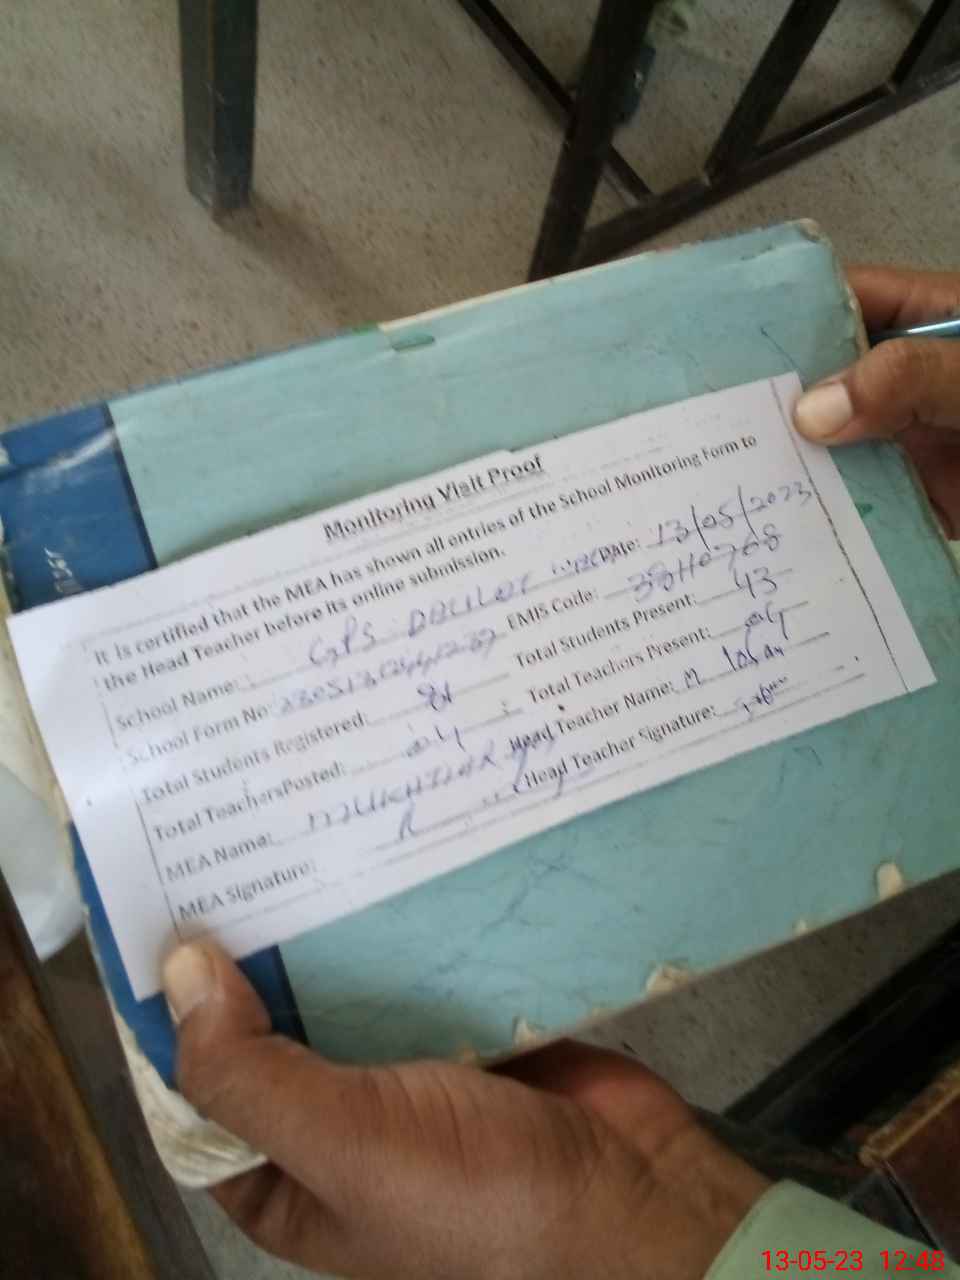 Monitoring Visit Proof
It is certified that the MEA has shown all entries of the School Monitoring Form to
the Head Teacher before its online submission.
School Name: GPS Date: 13/05/2023
School Form No: EMIS Code:
Total Students Registered: 81 Total Students Present: 43
Total TeachersPosted: 04 Total Teachers Present: 04
MEA Name: MUKHTIAR Head Teacher Name: M
MEA Signature: Head Teacher Signature:
13-05-23 12:48